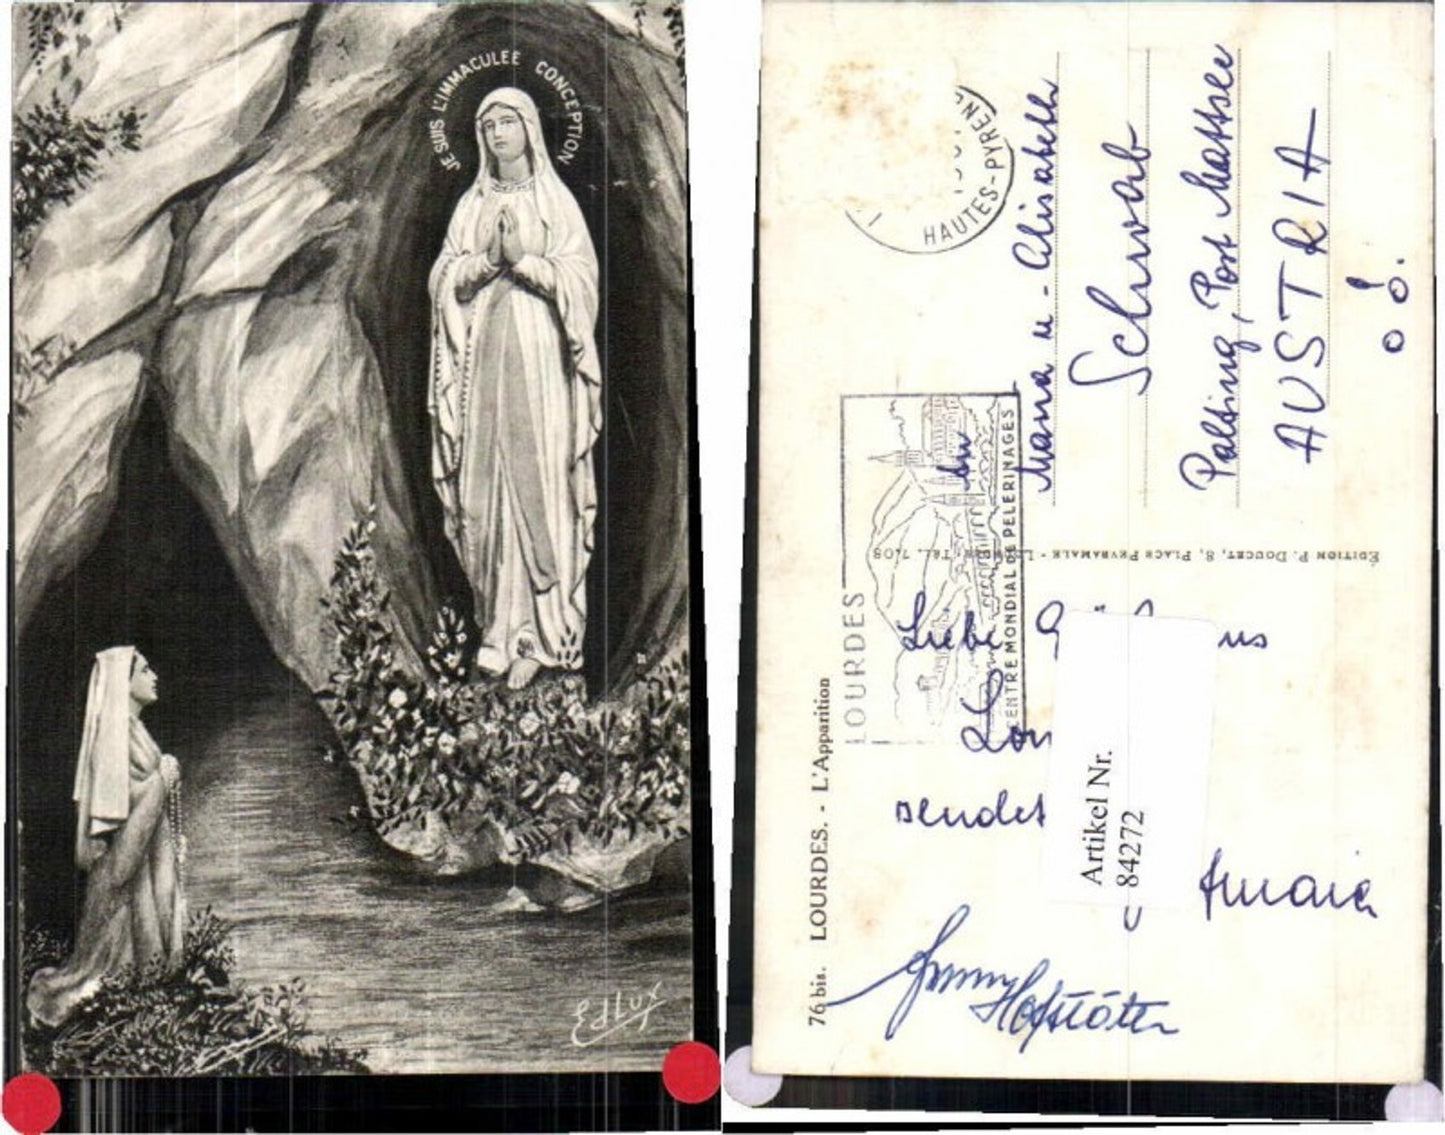 JE SUIS L'IMMACULEE CONCEPTION
EdLux
HAUTES-PYREN
LOURDES
CENTRE MONDIAL DE PELERINAGES
An
Maria u. Elisabeth
Schwab
Palting, Post Mattsee
AUSTRIA
ÉDITION P. DOUCET, 8, PLACE PEYRAMALE - LOURDES - TÉL. 7.08
76 bis. LOURDES. - L'Apparition
Liebe
us
Lou
sendet
Artikel Nr.
84272
Fanny Hofstötter